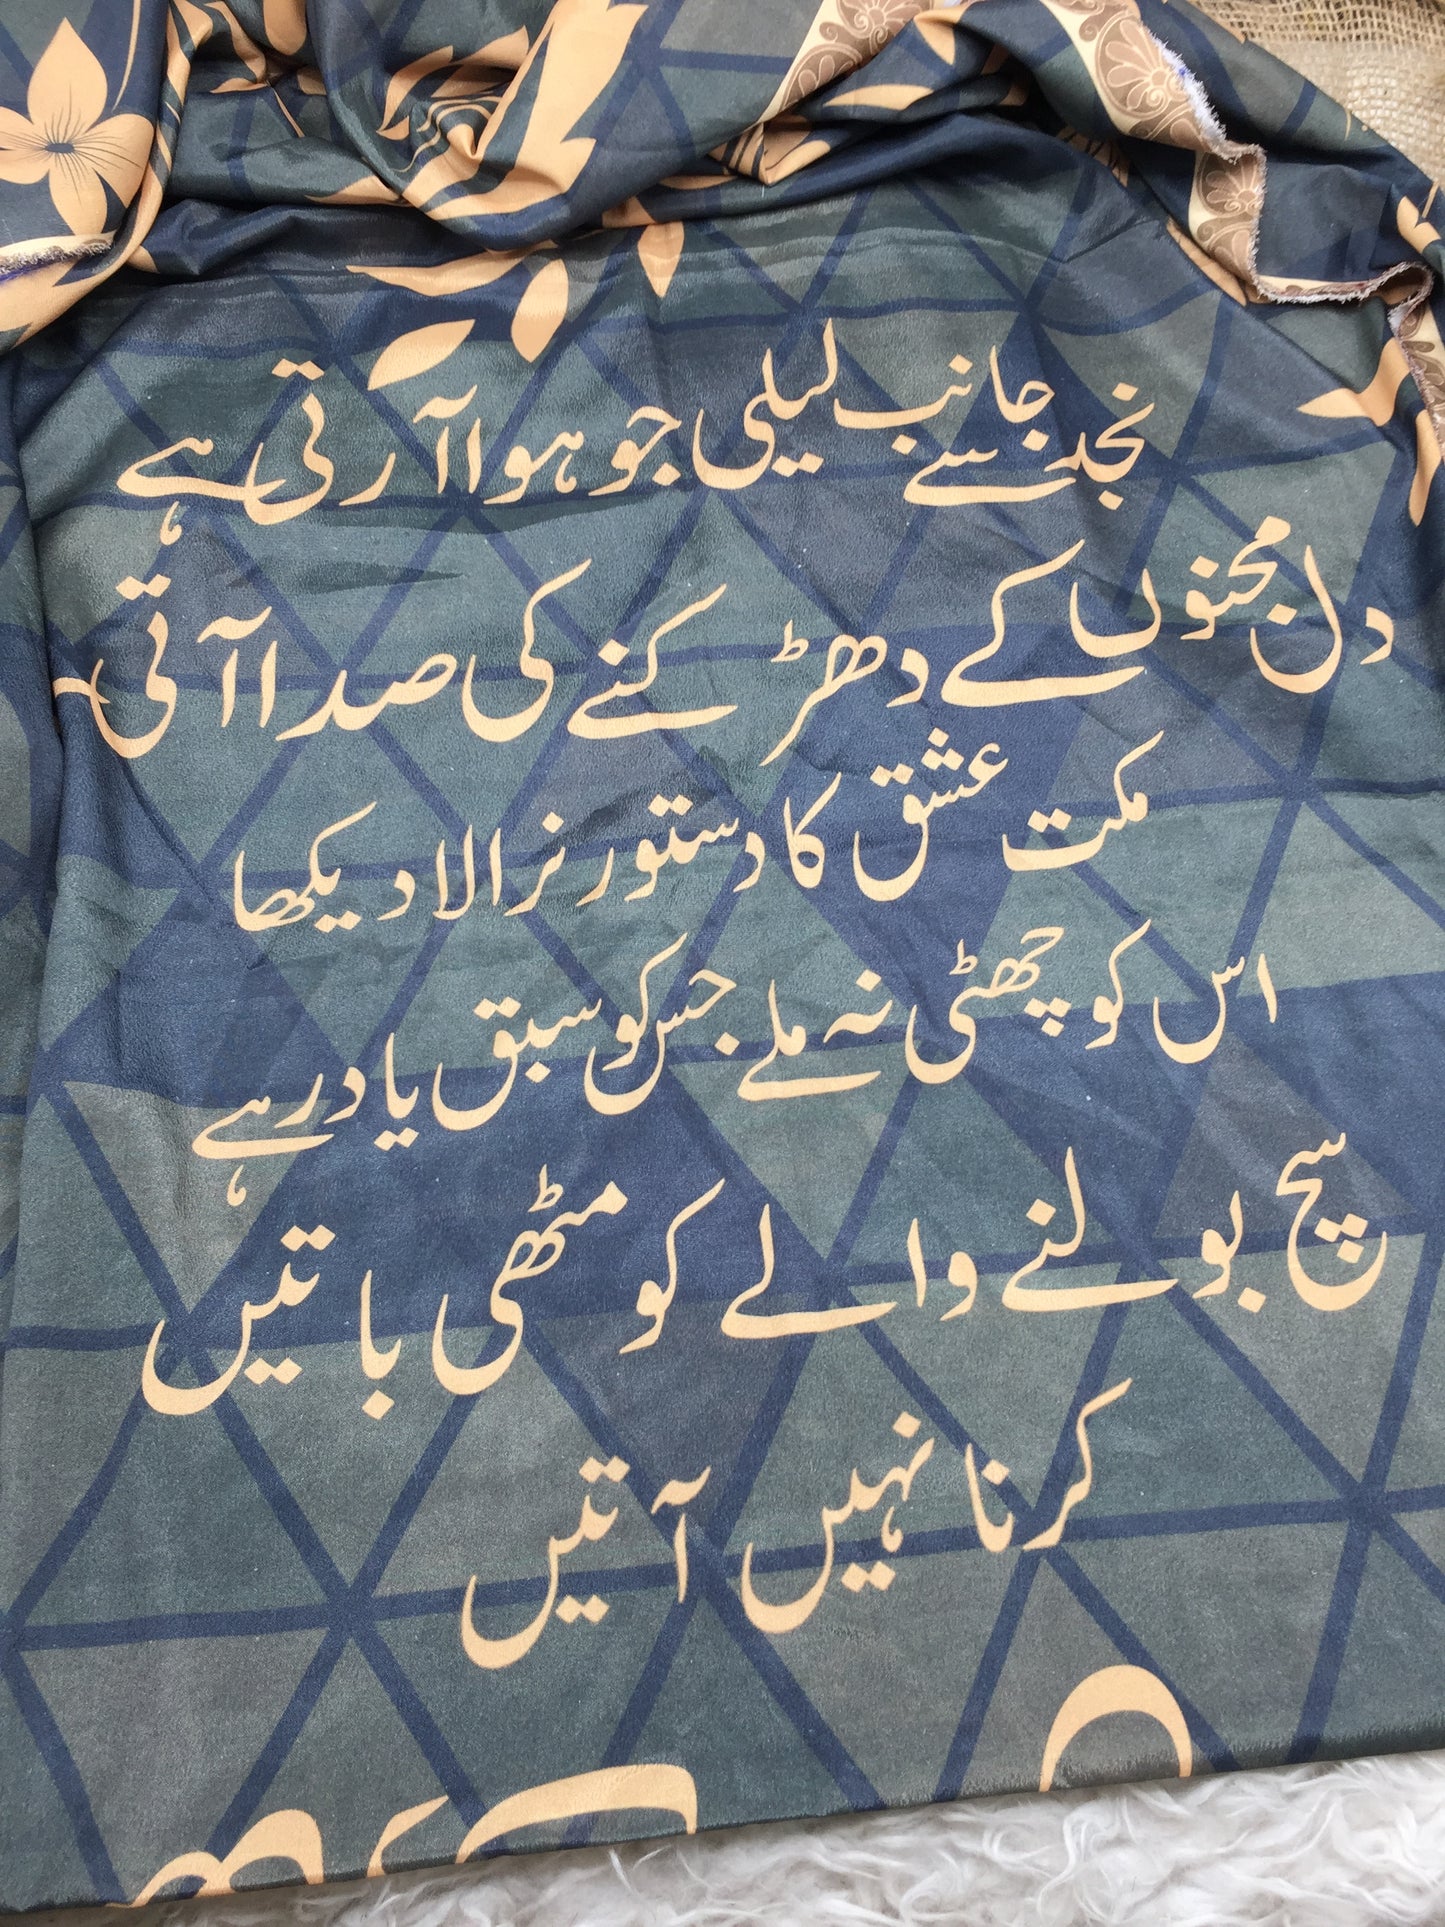 نجد سے جانب لیلی جو ہوا آ رتی ہے
دل مجنوں کے دھڑ کنے کی صدا آتی
مکت عشق کا دستور نرالا دیکھا
اس کو چھٹی نہ ملے جس کو سبق یا درہے
سچ بولنے والے کو مٹھی باتیں
کرنا نہیں آتیں